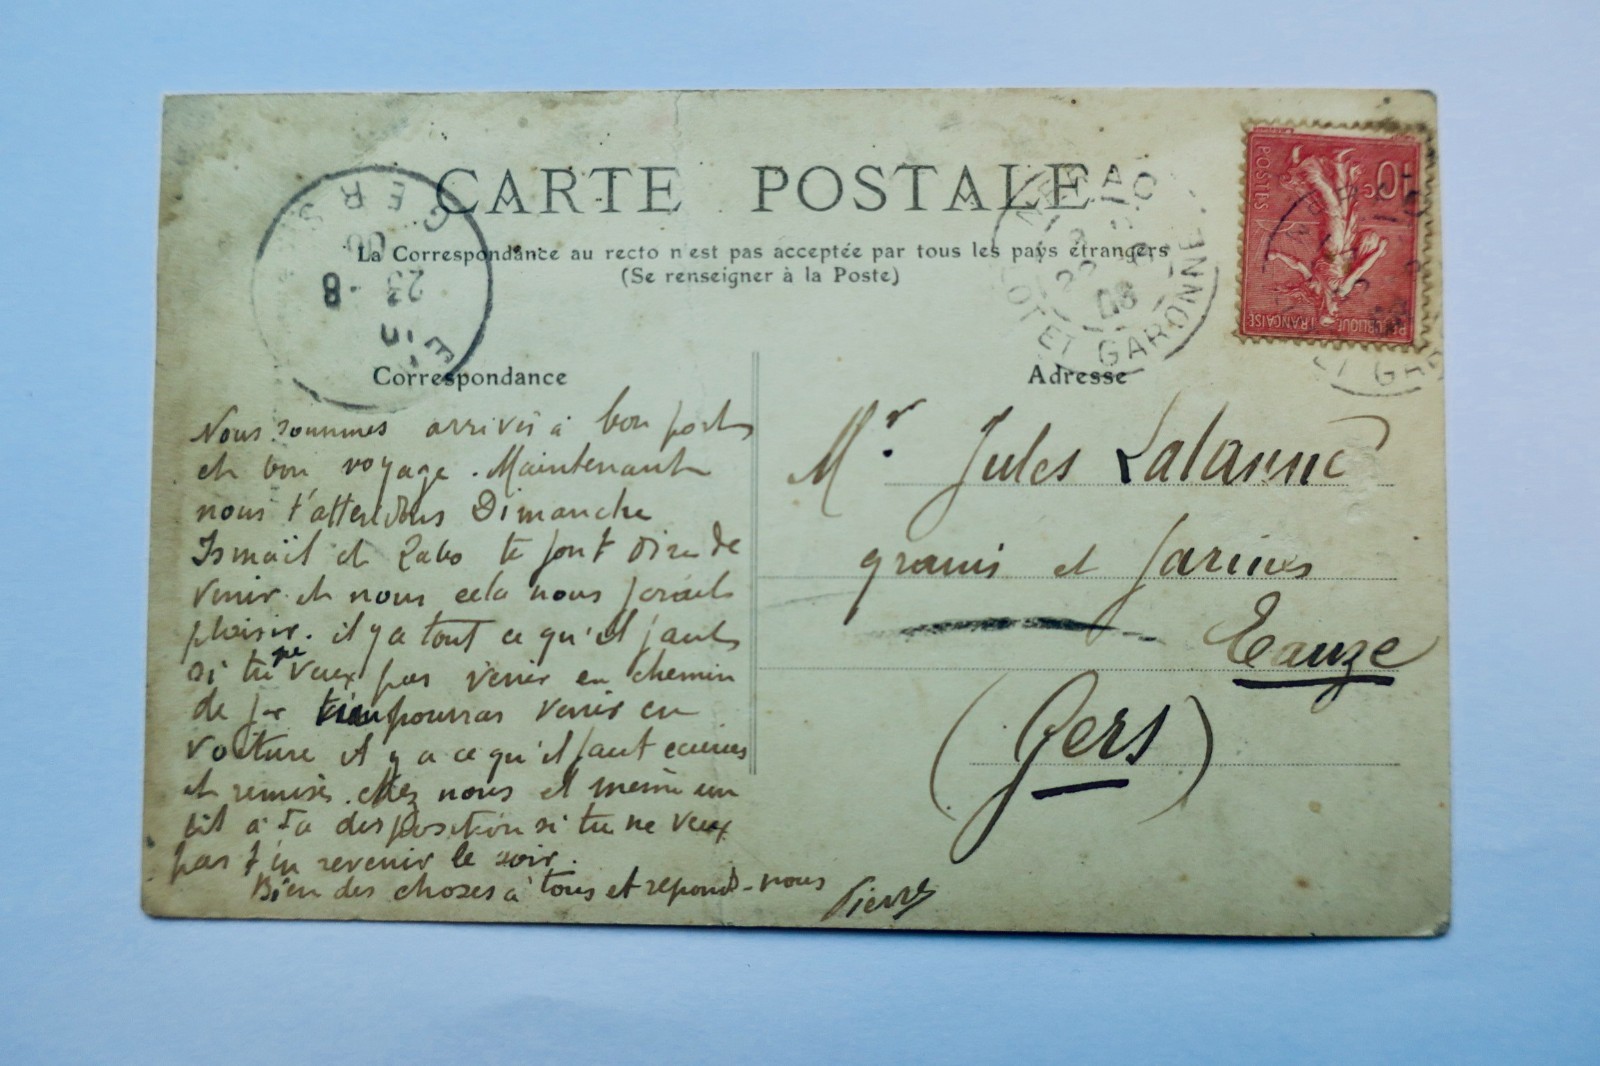 CARTE POSTALE
La Correspondance au recto n'est pas acceptée par tous les pays étrangers
(Se renseigner à la Poste)
Correspondance
Nous sommes arrivés à bon port
et bon voyage. Maintenant
nous t'attendons Dimanche
Ismaïl et te font dire de
venir et nous cela nous ferait
plaisir. il y a tout ce qu'il faut
si tu ne veux pas venir en chemin
de fer pourras venir en
voiture il y a ce qu'il faut écuries
et remises chez nous et même un
lit à ta disposition si tu ne veux
pas t'en revenir le soir.
Bien des choses à tous et réponds-nous
Pierre
Adresse
Mr. Jules Lalanne
grains et farines
Eauze
(Gers)
10c
POSTES
REPUBLIQUE FRANÇAISE
NERAC
LOT ET GARONNE
GERS
23 - 8